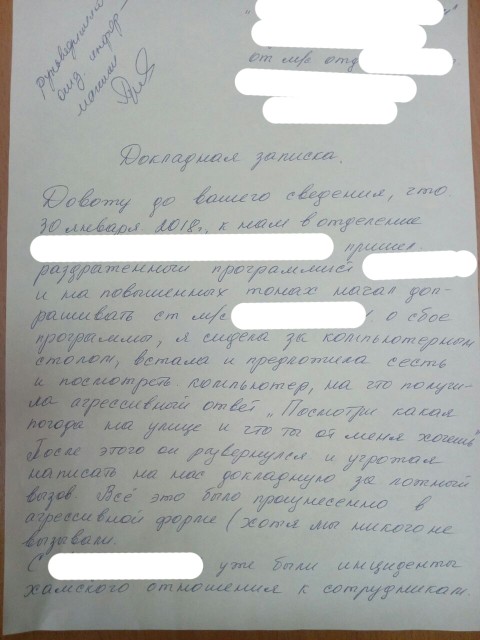 руководителю
отд. инфор-
мации
от м/с отд
Докладная записка.
Довожу до вашего сведения, что
30 января 2018г. к нам в отделение
пришел
раздраженный программист
и на повышенных тонах начал доп-
рашивать ст м/с о сбое
программы, я сидела за компьютерном
столом, встала и предложила сесть
и посмотреть компьютер, на что получи-
ла агрессивной ответ „Посмотри какая
погода на улице и что ты от меня хочешь"
После этого он развернулся и угрожал
написать на нас докладную за ложный
вызов Всё это было произнесенно в
агрессивной форме (хотя мы никого не
вызывали.
С уже были инциденты
хамского отношения к сотрудникам.